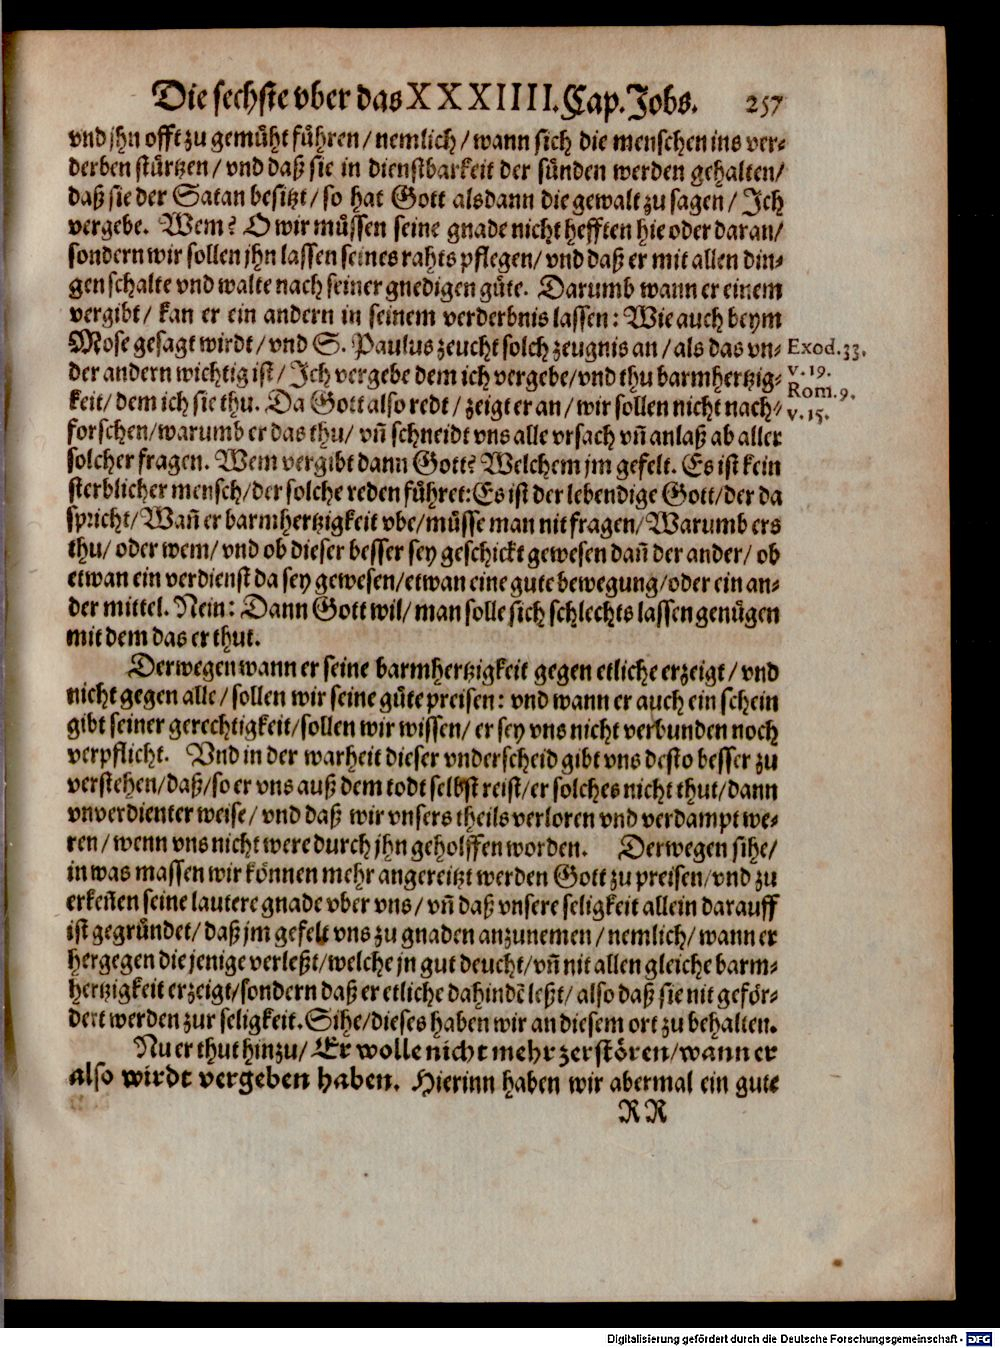 Die sechste vber das XXXIIII. Cap. Jobs. 257
vnd jhn offt zu gemüht führen / nemlich / wann sich die menschen ins ver-
derben stürtzen / vnd daß sie in dienstbarkeit der sünden werden gehalten /
daß sie der Satan besitzt / so hat Gott alsdann die gewalt zu sagen / Jch
vergebe. Wem? O wir müssen seine gnade nicht hefften hie oder daran /
sondern wir sollen jhn lassen seines rahts pflegen / vnd daß er mit allen din-
gen schalte vnd walte nach seiner gnedigen güte. Darumb wann er einem
vergibt / kan er ein andern in seinem verderbnis lassen: Wie auch beym
Mose gesagt wirdt / vnd S. Paulus zeucht solch zeugnis an / als das vn- Exod. 33.
v. 19.
der andern wichtig ist / Jch vergebe dem ich vergebe / vnd thu barmhertzig-
Rom. 9.
keit / dem ich sie thu. Da Gott also redt / zeigt er an / wir sollen nicht nach- v. 15.
forschen / warumb er das thu / vñ schneidt vns alle vrsach vñ anlaß ab aller
solcher fragen. Wem vergibt dann Gott? Welchem jm gefelt. Es ist kein
sterblicher mensch / der solche reden führet: Es ist der lebendige Gott / der da
spricht / Wañ er barmhertzigkeit vbe / müsse man nit fragen / Warumb ers
thu / oder wem / vnd ob dieser besser sey geschickt gewesen dañ der ander / ob
etwan ein verdienst da sey gewesen / etwan eine gute bewegung / oder ein an-
der mittel. Nein: Dann Gott wil / man solle sich schlechts lassen genügen
mit dem das er thut.
Derwegen wann er seine barmhertzigkeit gegen etliche erzeigt / vnd
nicht gegen alle / sollen wir seine güte preisen: vnd wann er auch ein schein
gibt seiner gerechtigkeit / sollen wir wissen / er sey vns nicht verbunden noch
verpflicht. Vnd in der warheit dieser vnderscheid gibt vns desto besser zu
verstehen / daß / so er vns auß dem todt selbst reist / er solches nicht thut / dann
vnverdienter weise / vnd daß wir vnsers theils verloren vnd verdampt we-
ren / wenn vns nicht were durch jhn geholffen worden. Derwegen sihe /
in was massen wir können mehr angereitzt werden Gott zu preisen / vnd zu
erkeñen seine lautere gnade vber vns / vñ daß vnsere seligkeit allein darauff
ist gegründet / daß jm gefelt vns zu gnaden anzunemen / nemlich / wann er
hergegen die jenige verleßt / welche jn gut deucht / vñ nit allen gleiche barm-
hertzigkeit erzeigt / sondern daß er etliche dahindẽ leßt / also daß sie nit geför-
dert werden zur seligkeit. Sihe / dieses haben wir an diesem ort zu behalten.
Nu er thut hinzu / Er wolle nicht mehr zerstören / wann er
also wirdt vergeben haben. Hierinn haben wir abermal ein gute
RR
Digitalisierung gefördert durch die Deutsche Forschungsgemeinschaft - DFG